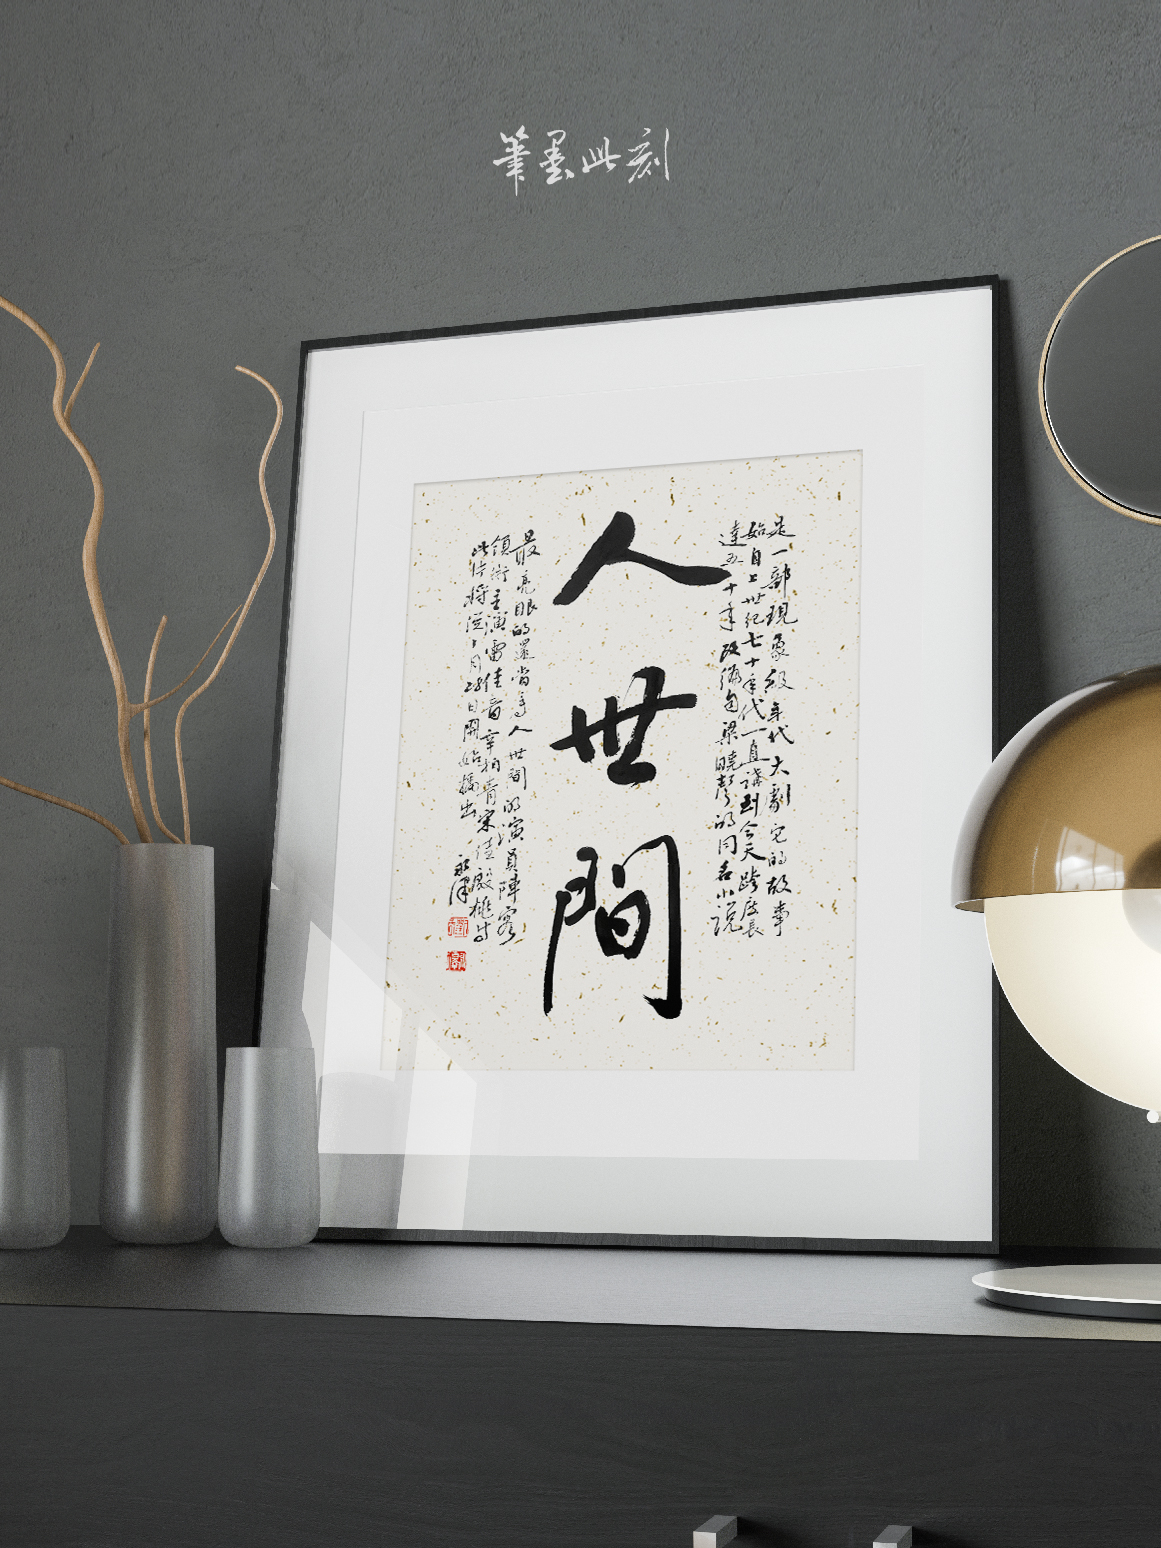 筆墨此刻
是一部現象級年代大劇它的故事
始自上世纪七十年代一直講到今天跨度長
達五十年改编自梁曉聲的同名小説
人世間
最亮眼的還當手人世間的演員陣容
領銜主演雷佳音辛柏青宋佳殷桃等
此片將從1月28日開始播出